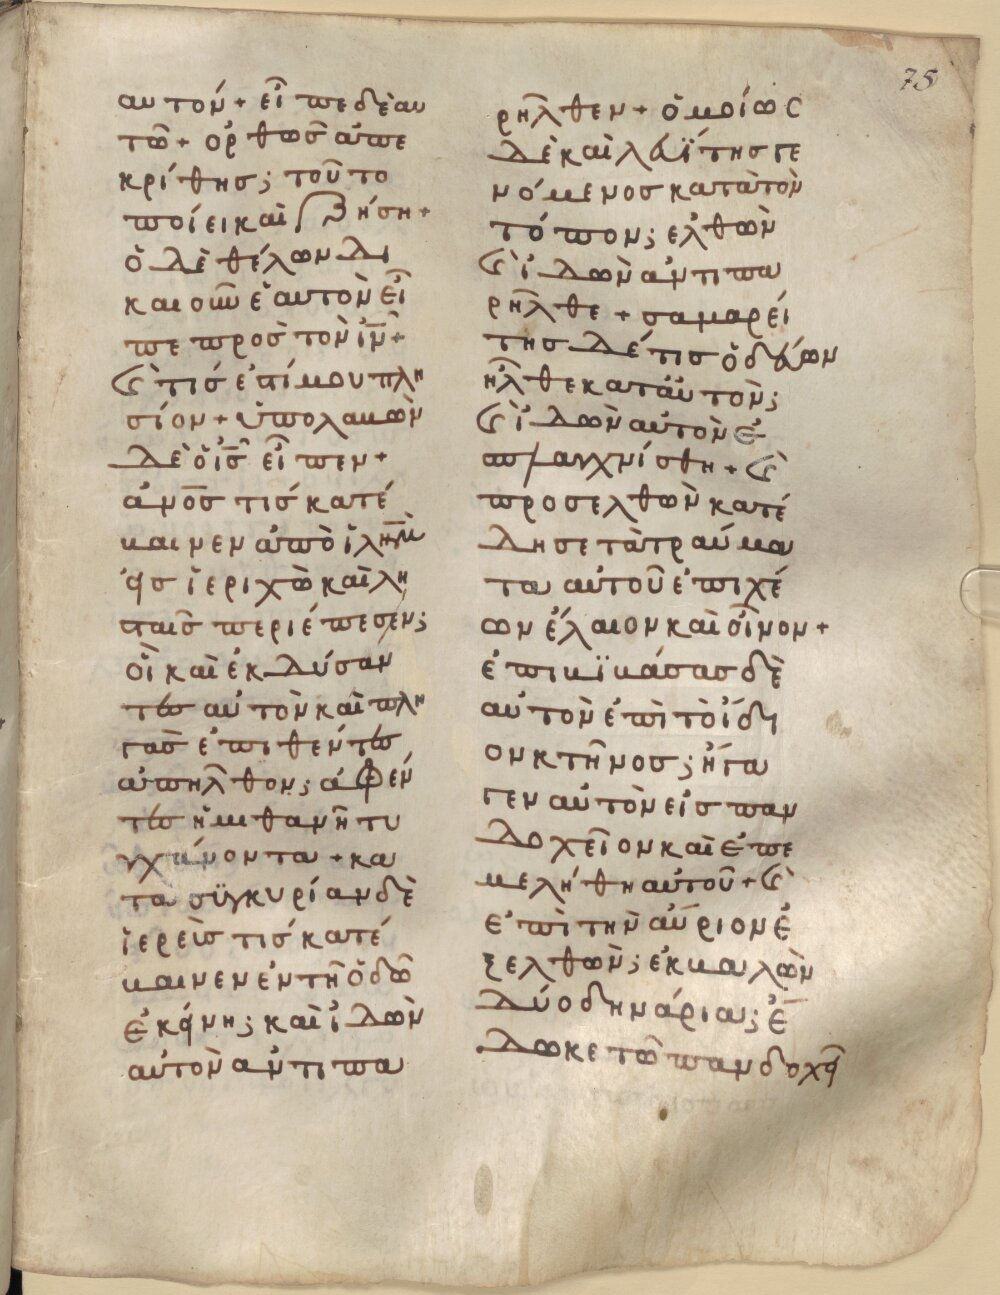 75
αυτόν + εἶπε δὲ αυ
τῶ + ὀρθῶσ ἀπε
κρίθησ ; τοῦτο
ποίει καὶ ζήση +
ὁ δὲ θέλων δι
καιοῦν ἑαυτὸν εἶ
πε πρὸσ τὸν ιν̅ +
καὶ τίσ ἐστί μου πλη
σίον + ὑπολαβὼν
δὲ ὁ ισ̅ εἶπεν +
ἄνοσ̅ τισ κατέ
βαινεν ἀπὸ ιλημ̅
εἰσ ἱεριχὼ καὶ λη
σταῖσ περιέπεσεν ;
οἳ καὶ ἐκδύσαν
τεσ αὐτὸν καὶ πλη
γὰσ ἐπιθέντεσ
ἀπῆλθον ; ἀφέν
τεσ ἡμιθανῆ τυ
γχάνοντα + κα
τὰ συγκυρίαν δὲ
ἱερεύσ τισ κατέ
βαινεν ἐν τῆ ὁδῶ
ἐκείνη ; καὶ ἰδὼν
αὐτὸν ἀντιπα
ρῆλθεν + ὁμοίωσ
δὲ καὶ λευΐτησ γε
νόμενοσ κατὰ τὸν
τόπον ; ἐλθὼν
καὶ ἰδὼν ἀντιπα
ρῆλθε + σαμαρεί
τησ δέ τισ ὁδεύων
ἦλθε κατ᾽ αὐτὸν ;
καὶ ἰδὼν αὐτὸν ἐ
σπλαγχνίσθη + καὶ
προσελθὼν κατέ
δησε τὰ τραύμα
τα αὐτοῦ ἐπιχέ
ων ἔλαιον καὶ οἶνον +
ἐπιβϊβάσασ δὲ
αὐτὸν ἐπὶ τὸ ἴδι
ον κτῆνοσ ; ἤγα
γεν αὐτὸν εἰσ παν
δοχεῖον καὶ ἐπε
μελήθη αὐτοῦ + καὶ
ἐπὶ τὴν αὔριον ἐ
ξελθὼν ; ἐκβαλὼν
δύο δηνάρια ; ἔ
δωκε τῶ πανδοχεῖ